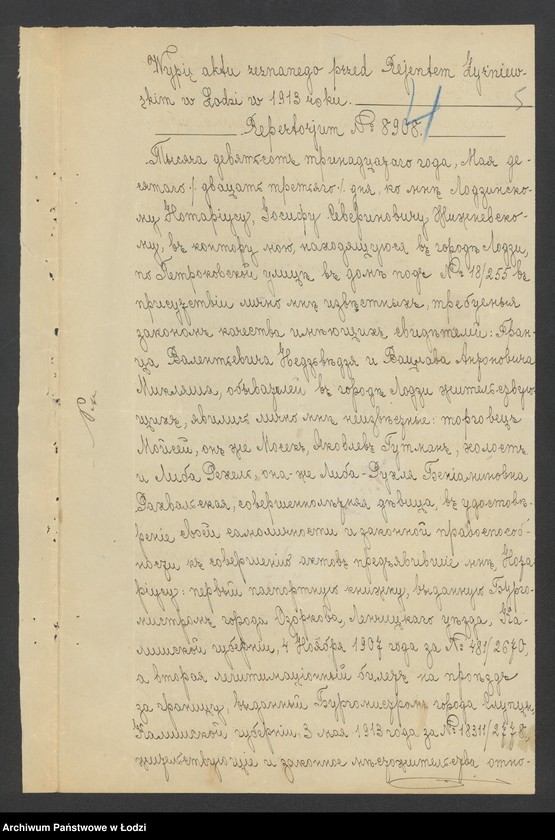 Wypis aktu zeznanego przed Rejentem Żyźniew-
skim w Łodzi w 1913 roku.
5
Repertorjum № 8908.
Тысяча девятьсотъ тринадцатаго года, Мая де-
сятаго /двадцать третьяго/ дня, ко мнѣ Лодзинско-
му Нотаріусу, Іосифу Севериновичу Жижневско-
му, въ контору мою, находящуюся въ городѣ Лодзи,
по Петроковской улицѣ въ домѣ подъ № 18/255 въ
присутствіи лично мнѣ извѣстныхъ, требуемыя
закономъ качества имѣющихъ свидѣтелей: Фран-
ца Валентьевича Недзвѣдзя и Вацлава Антоновича
Микляша, обывателей въ городѣ Лодзи жительствую-
щихъ, явились лично мнѣ неизвѣстные: торговецъ
Мойсей, онъ же Мосекъ, Яковлевъ Гутманъ, холостъ
и Либа Рехель, она-же Либа-Рухля Беніаминовна
Рахвальская, совершеннолѣтняя дѣвица, въ удостовѣ-
реніе своей самоличности и законной правоспособ-
ности къ совершенію актовъ предъявившіе мнѣ, Нота-
ріусу: первый паспортную книжку, выданную Бурго-
мистромъ города Озоркова, Ленчицкаго уѣзда, Ка-
лишской губерніи, 4 Ноября 1907 года за № 481/2670,
а вторая легитимаціонный билетъ на проѣздъ
за границу, выданный Бургомистромъ города Слупцы,
Калишской губерніи 3 мая 1913 года за № 18311/2778,
жительствующіе и законное мѣстожительства отно-
Archiwum Państwowe w Łodzi